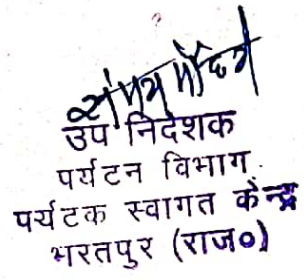 उप निदेशक
पर्यटन विभाग
पर्यटक स्वागत केन्द्र
भरतपुर (राज०)